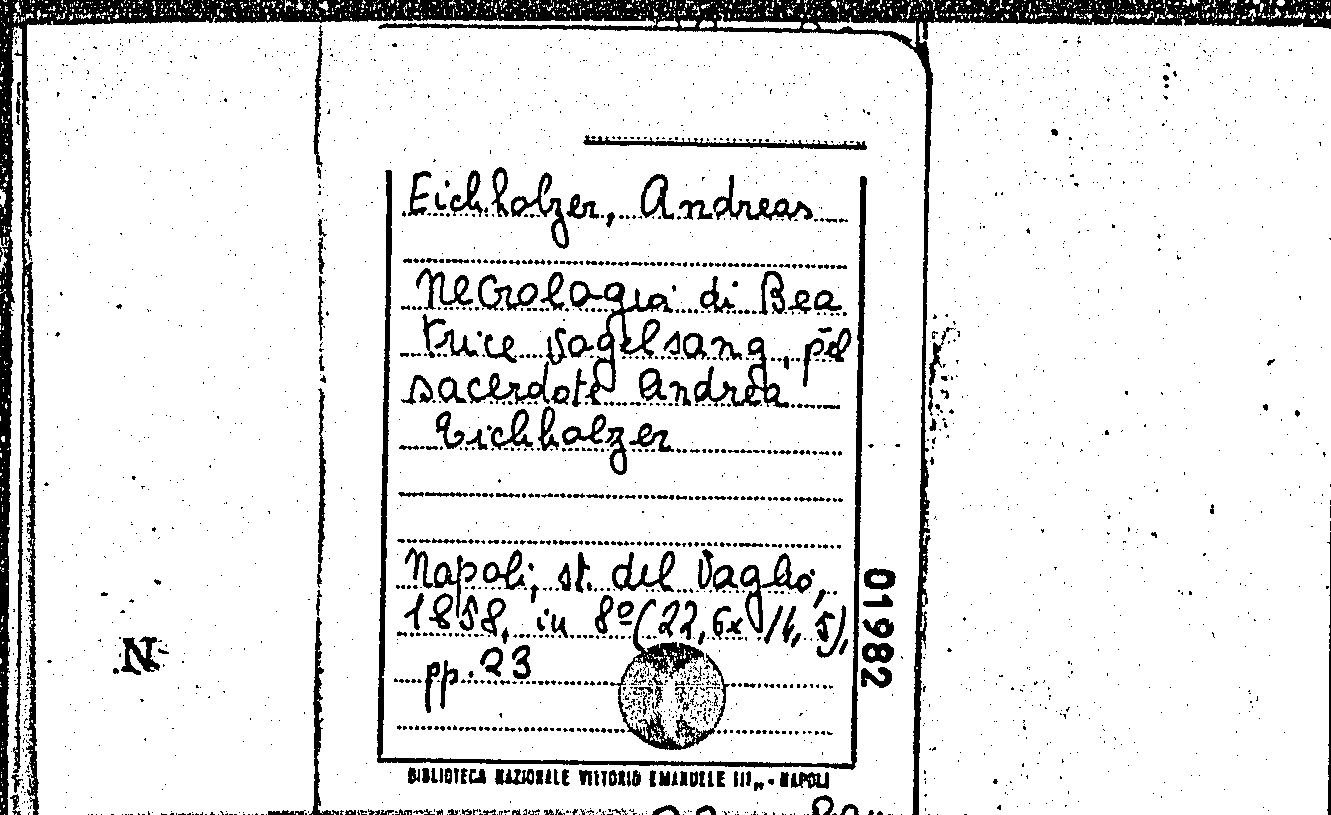 Eichholzer, Andreas
Necrologia di Bea
trice Vogelsang, pel
sacerdote Andrea
Eichholzer
Napoli, st. del Vaglio,
1858, in 8º (22,6x14,5),
pp. 23
01982
N
BIBLIOTECA NAZIONALE VITTORIO EMANUELE III„ - NAPOLI